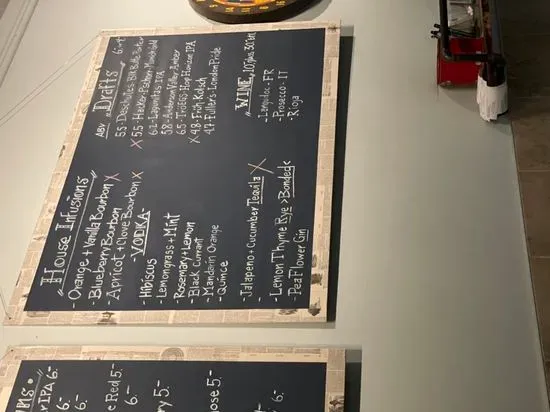 House Infusions
- Orange + Vanilla Bourbon X
- Blueberry Bourbon
- Apricot + Clove Bourbon X
- VODKA -
Hibiscus
- Lemongrass + Mint
- Rosemary + Lemon
- Black Currant
- Mandarin Orange
- Quince
- Jalapeno + Cucumber Tequila X
- Lemon Thyme Rye > Bonded <
Pea Flower Gin
Drafts
ABV
5.5 - Deschutes
X 5.5 - Hacker-Pschorr
6.2 - Lagunitas IPA
5.8 - Anderson Valley Amber
6.5 - Hop Horizon IPA
X 4.8 - Früh Kölsch
4.7 - Fullers - London Pride
WINE
- Languedoc - FR
- Prosecco - IT
- Rioja
IPA 6.-
6.-
e Red 5.-
6.-
ry 5.-
ose 5.-
6.-